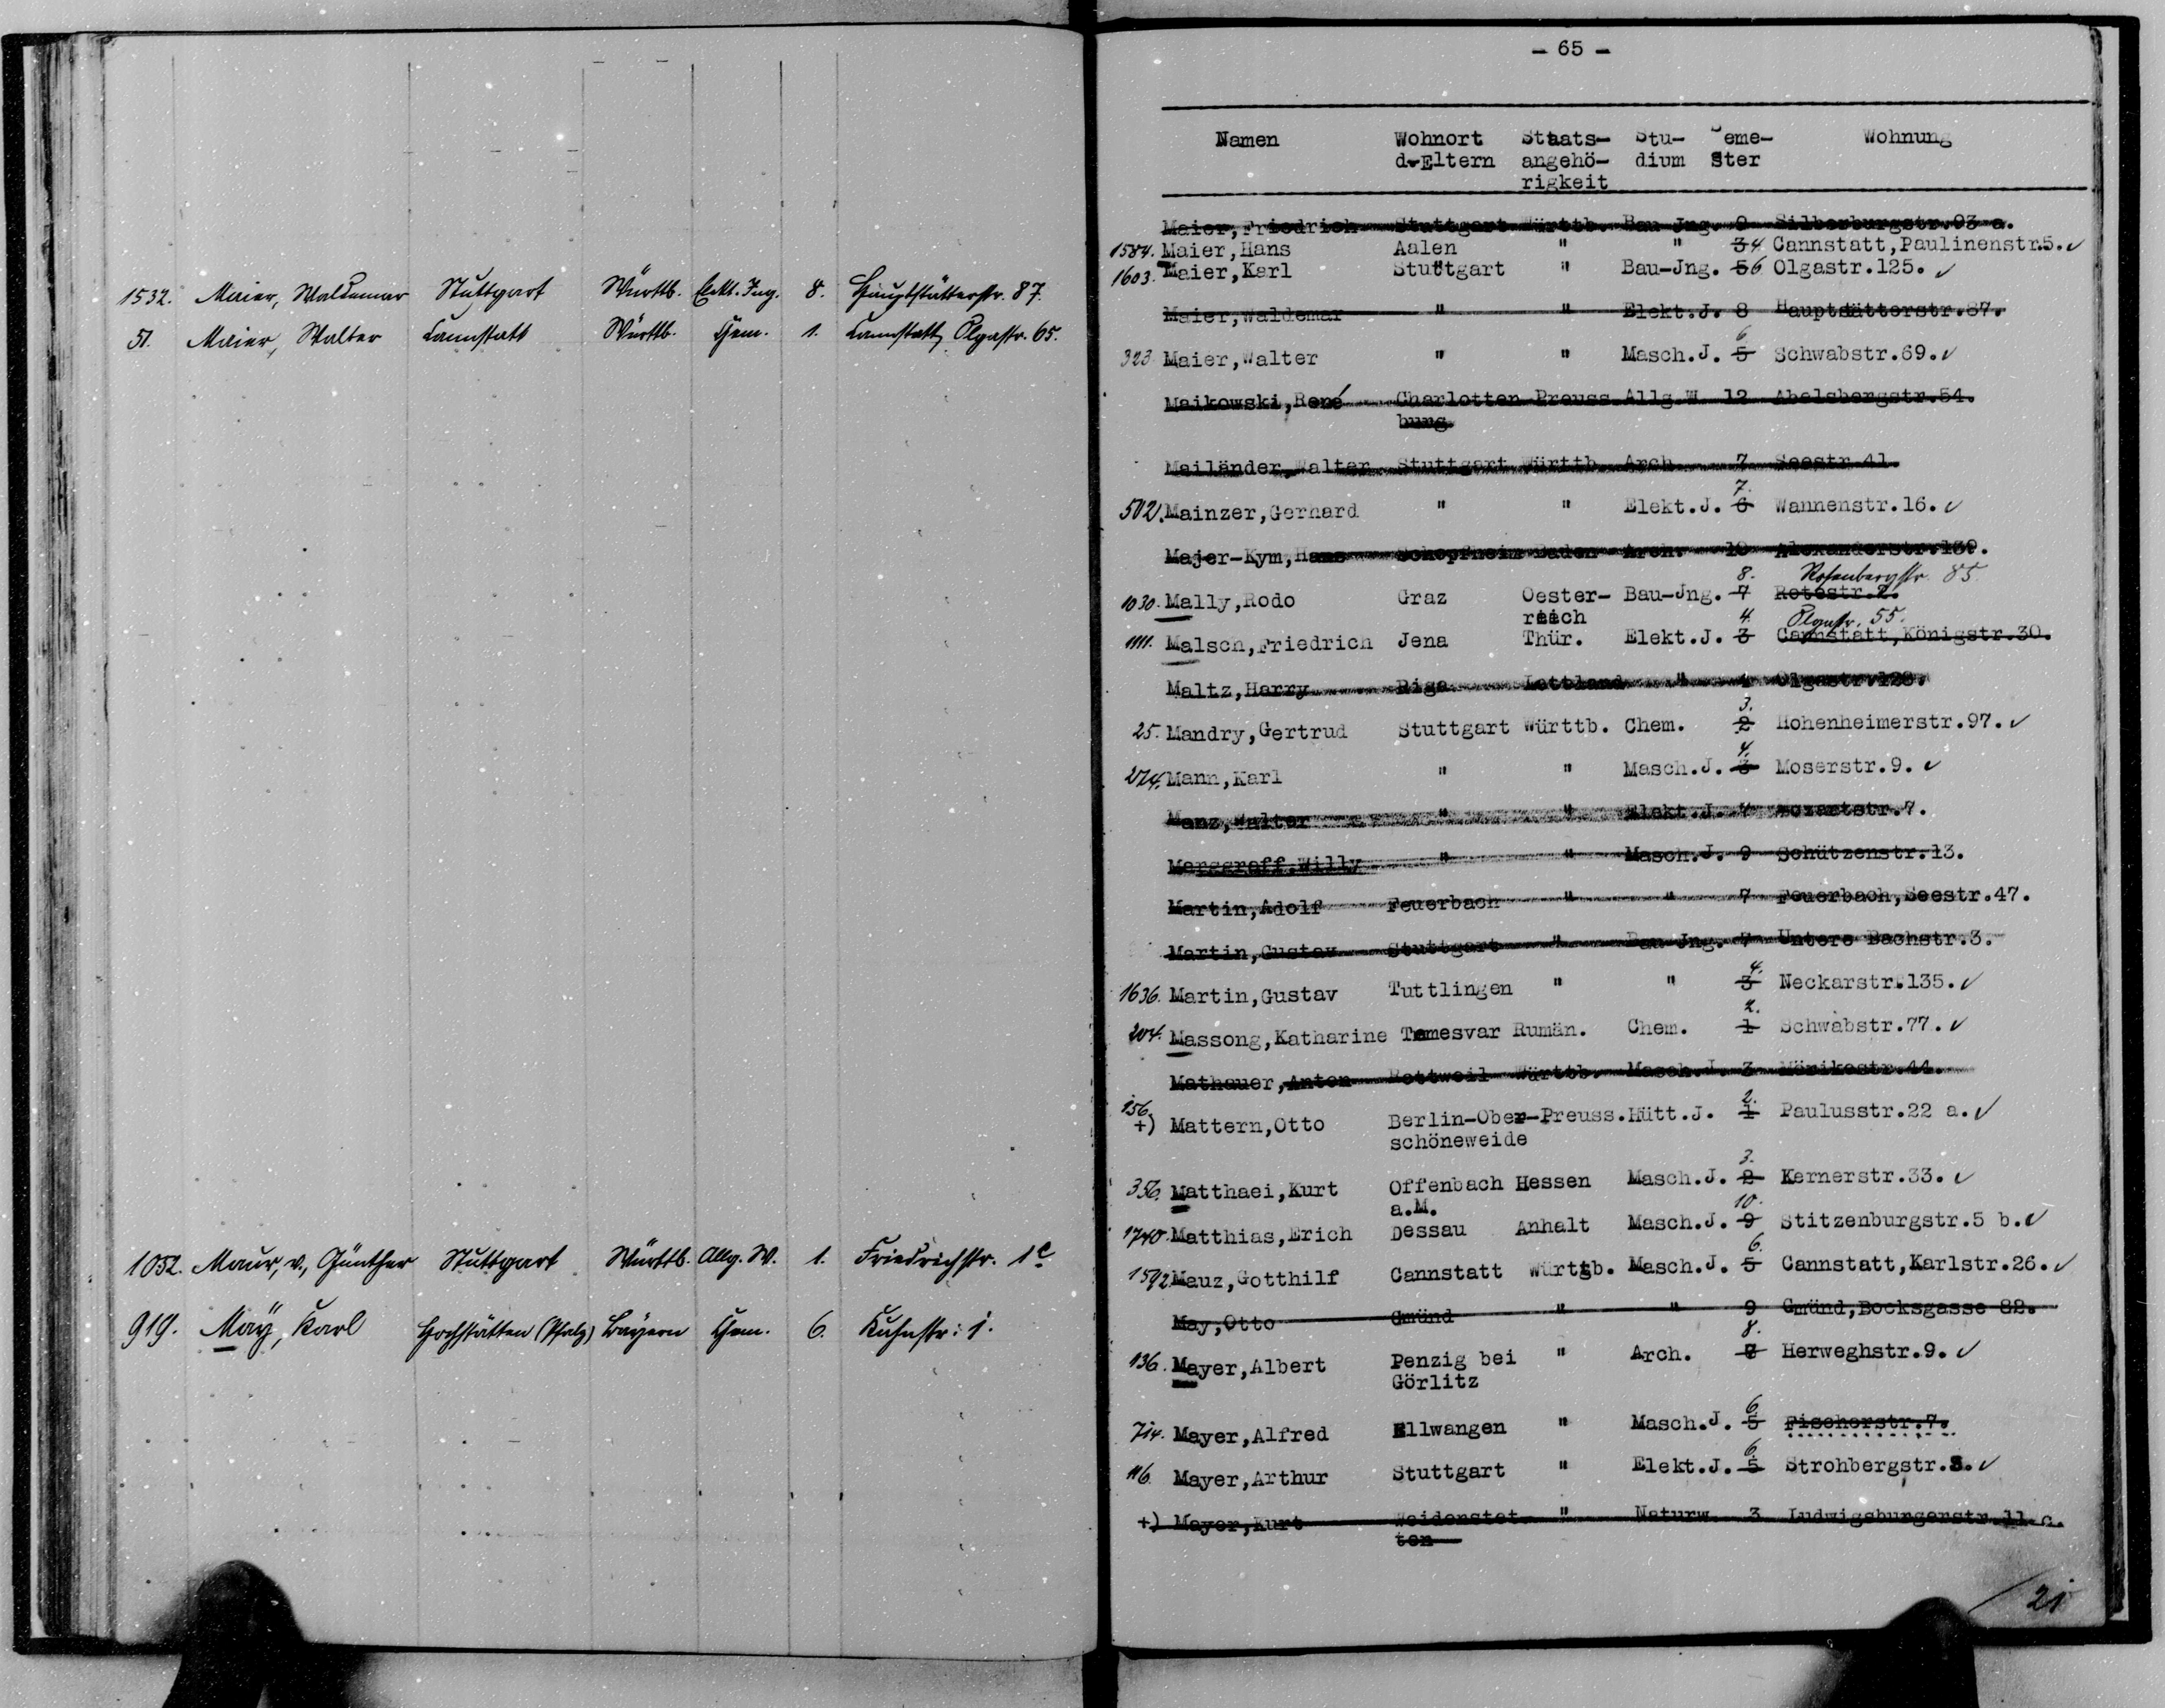 1532. Maier, Waldemar Stuttgart Württb. Elekt. Ing. 8. Hauptstätterstr. 87.
51. Maier, Walter Cannstatt Württb. Chem. 1. Cannstatt, Olgastr. 65.
1052. Maur, v., Günther Stuttgart Württb. Allg. W. 1. Friedrichstr. 1c
919. Maÿ, Karl Hochstätten (Pfalz) Bayern Chem. 6. Kuhnstr. 1.
- 65 -
Namen Wohnort Staats- Stu- Seme- Wohnung
d.Eltern angehö- dium ster
rigkeit
Maier,Friedrich Stuttgart Württb. Bau-Jng. 9 Silberburgstr.93 a.
1584. Maier,Hans Aalen " " 3 4 Cannstatt,Paulinenstr.5. ✓
1603. Maier,Karl Stuttgart " Bau-Jng. 5 6 Olgastr.125. ✓
Maier,Waldemar " " Elekt.J. 8 Hauptstätterstr.87.
6
323. Maier,Walter " " Masch.J. 5 Schwabstr.69. ✓
Maikowski,René Charlotten Preuss Allg.W 12 Abelsbergstr.54.
burg.
Mailänder,Walter Stuttgart Württb. Arch. 7 Seestr.41.
7.
502. Mainzer,Gerhard " " Elekt.J. 6 Wannenstr.16. ✓
Majer-Kym,Hans Schopfheim Baden Arch. 10 Alexanderstr.139.
8. Rosenbergstr. 85.
1030. Mally,Rodo Graz Oester- Bau-Jng. 7 Rotestr.2.
reich
4. Olgastr. 55.
1111. Malsch,Friedrich Jena Thür. Elekt.J. 3 Cannstatt,Königstr.30.
Maltz,Harry Riga Lettland " 1 Olgastr.128.
3.
25. Mandry,Gertrud Stuttgart Württb. Chem. 2 Hohenheimerstr.97. ✓
4.
274. Mann,Karl " " Masch.J. 3 Moserstr.9. ✓
Manz,Walter " " Elekt.J. 4 Mozartstr.7.
Marggraff,Willy " " Masch.J. 9 Schützenstr.13.
Martin,Adolf Feuerbach " " 7 Feuerbach,Seestr.47.
Martin,Gustav Stuttgart " Bau-Jng. 7 Untere Bachstr.3.
4.
1636. Martin,Gustav Tuttlingen " " 3 Neckarstr.135. ✓
2.
204. Massong,Katharine Temesvar Rumän. Chem. 1 Schwabstr.77. ✓
Mathauer,Anton Rottweil Württb. Masch.J. 3 Mörikestr.44.
156. 2.
+) Mattern,Otto Berlin-Ober-Preuss.Hütt.J. 1 Paulusstr.22 a. ✓
schöneweide
3.
356. Matthaei,Kurt Offenbach Hessen Masch.J. 2 Kernerstr.33. ✓
a.M.
10.
1740. Matthias,Erich Dessau Anhalt Masch.J. 9 Stitzenburgstr.5 b. ✓
6.
1592. Mauz,Gotthilf Cannstatt Württb. Masch.J. 5 Cannstatt,Karlstr.26. ✓
May,Otto Gmünd " " 9 Gmünd,Bocksgasse 82.
8.
136. Mayer,Albert Penzig bei " Arch. 7 Herweghstr.9. ✓
Görlitz
6.
714. Mayer,Alfred Ellwangen " Masch.J. 5 Fischerstr.7.
6.
116. Mayer,Arthur Stuttgart " Elekt.J. 5 Strohbergstr.8. ✓
+) Mayer,Kurt Weidenstet- " Naturw. 3 Ludwigsburgerstr.11 c.
ten
21